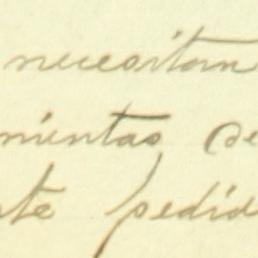 necesitan
mientas de
te pedid